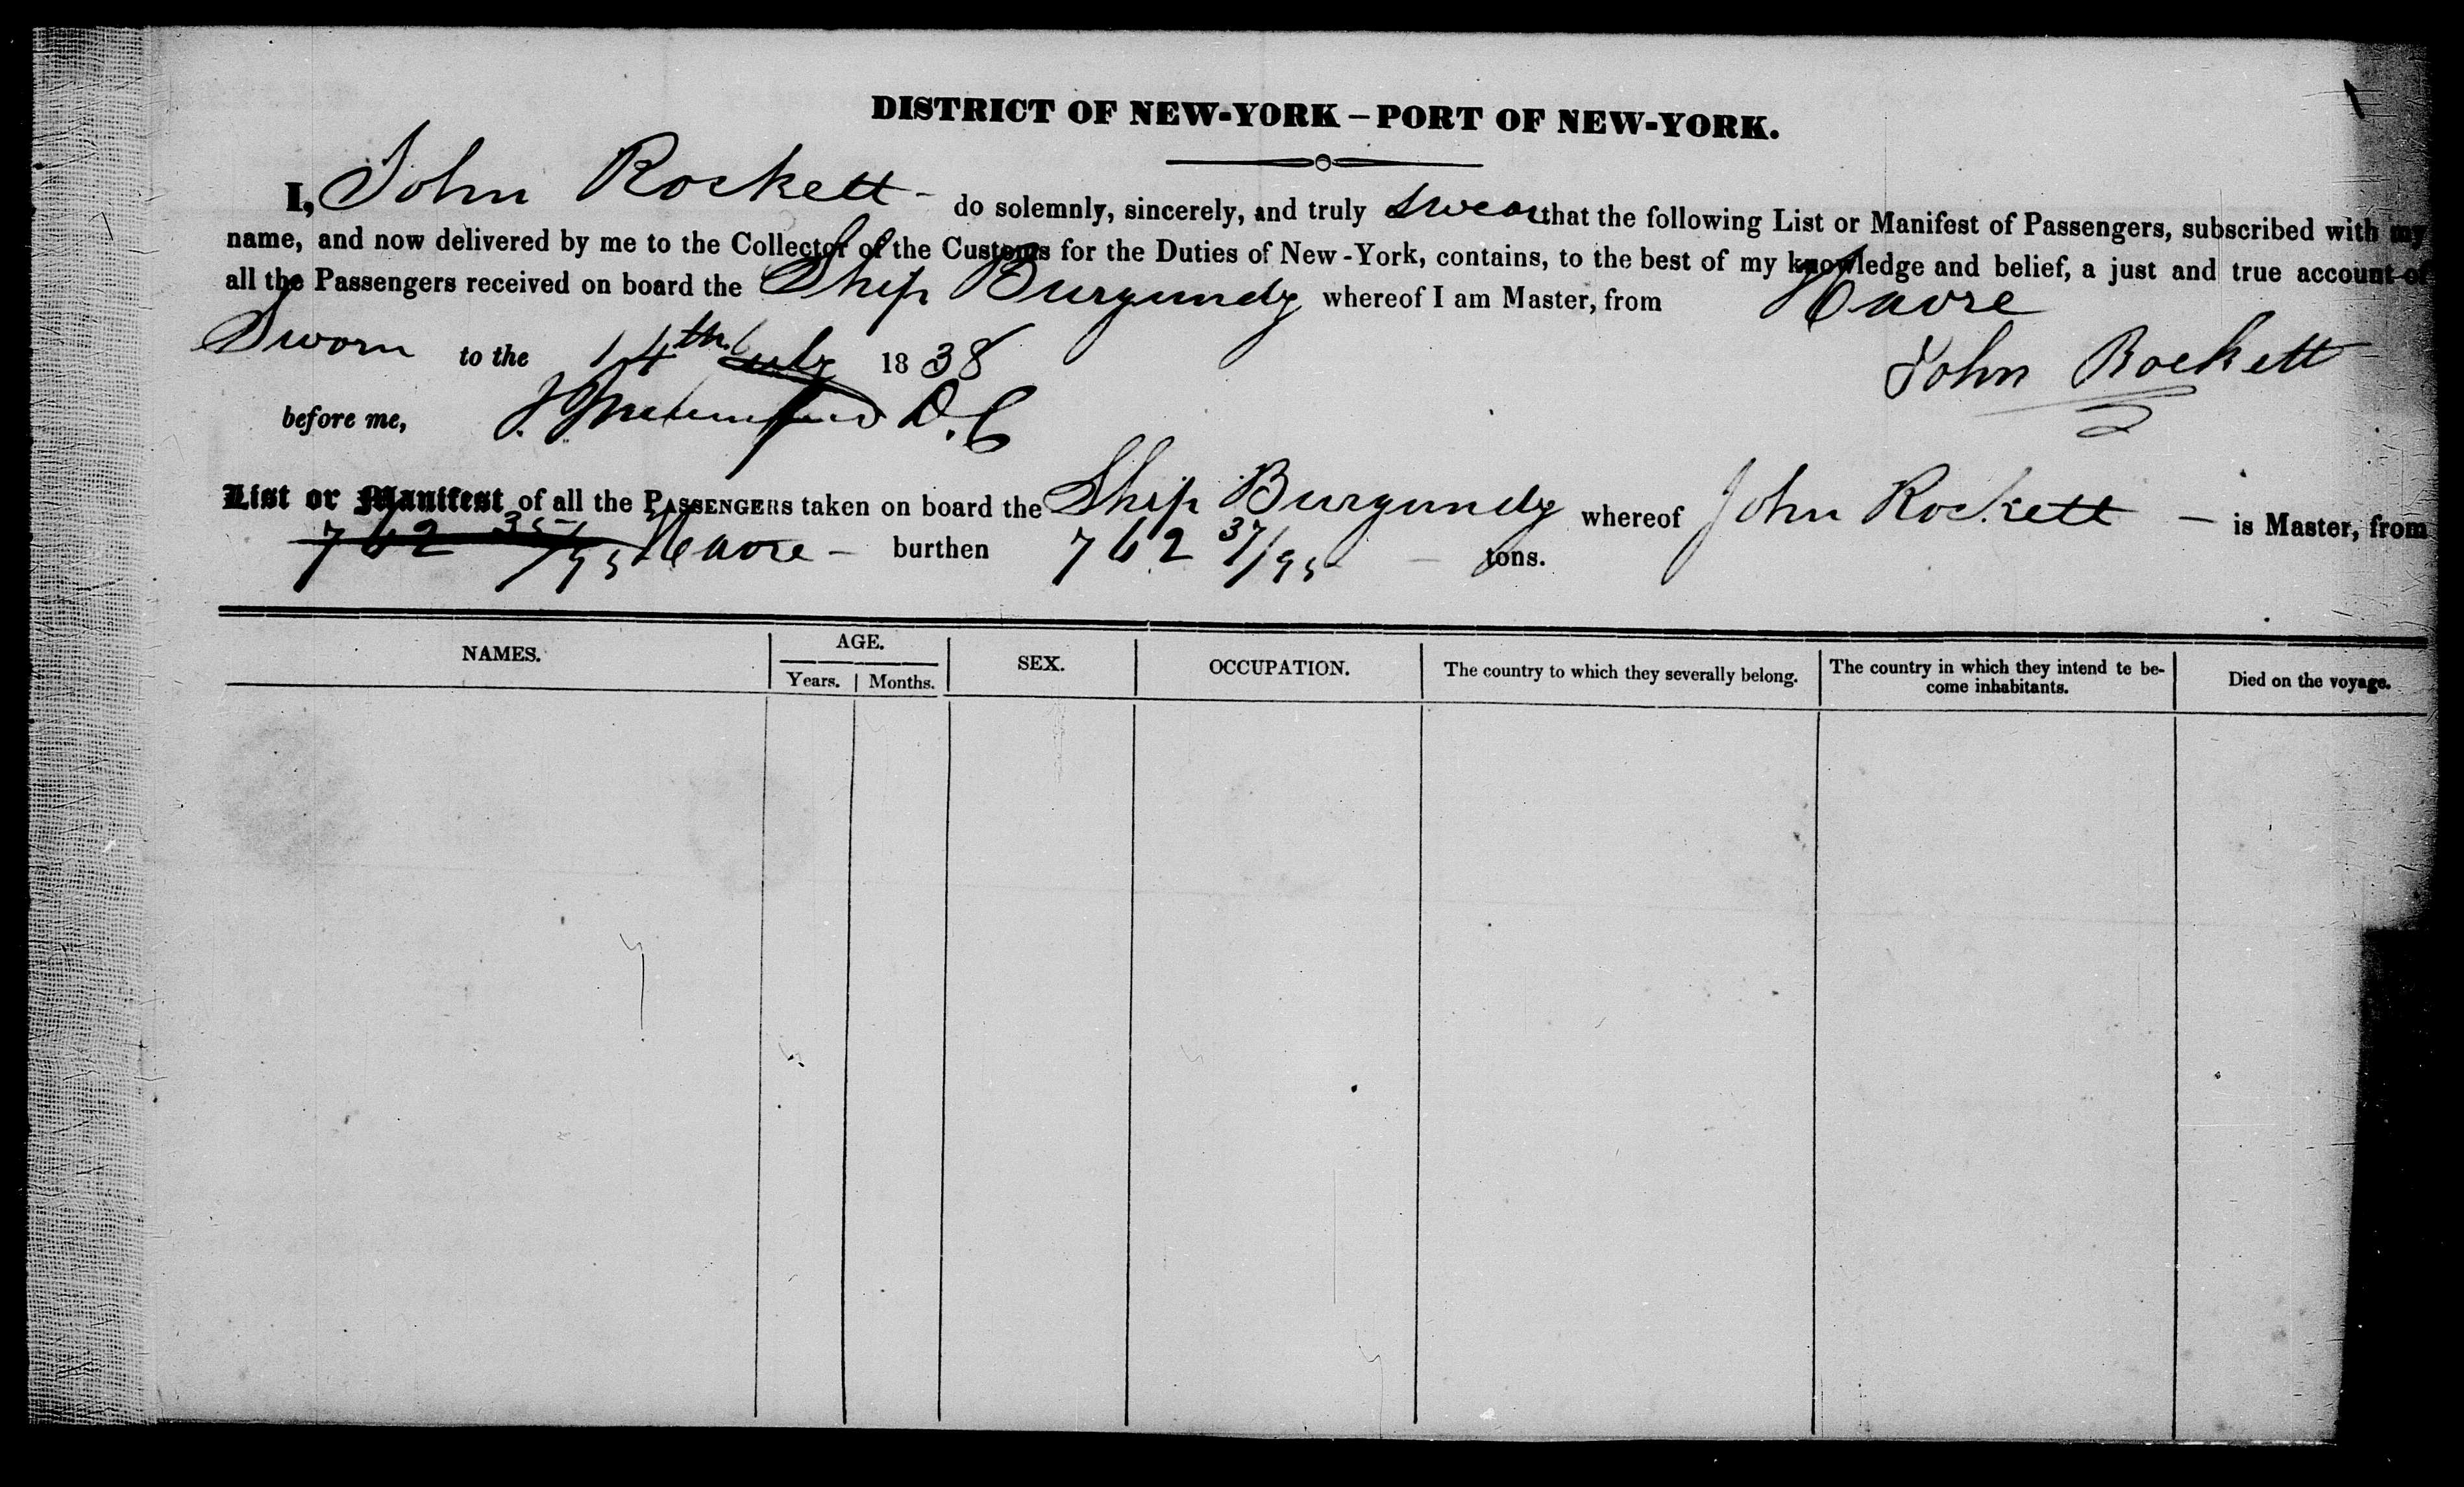 DISTRICT OF NEW-YORK – PORT OF NEW-YORK.
I, John Rockett - do solemnly, sincerely, and truly swear that the following List or Manifest of Passengers, subscribed with my
name, and now delivered by me to the Collector of the Customs for the Duties of New-York, contains, to the best of my knowledge and belief, a just and true account of
all the Passengers received on board the Ship Burgundy whereof I am Master, from Havre
Sworn to the 14th July 1838
John Rockett
before me, D. C
List or Manifest of all the PASSENGERS taken on board the Ship Burgundy whereof John Rockett – is Master, from
762 35/95 Havre – burthen 762 37/95 tons.
NAMES. AGE. SEX. OCCUPATION. The country to which they severally belong. The country in which they intend te be-
come inhabitants. Died on the voyage.
Years. Months.